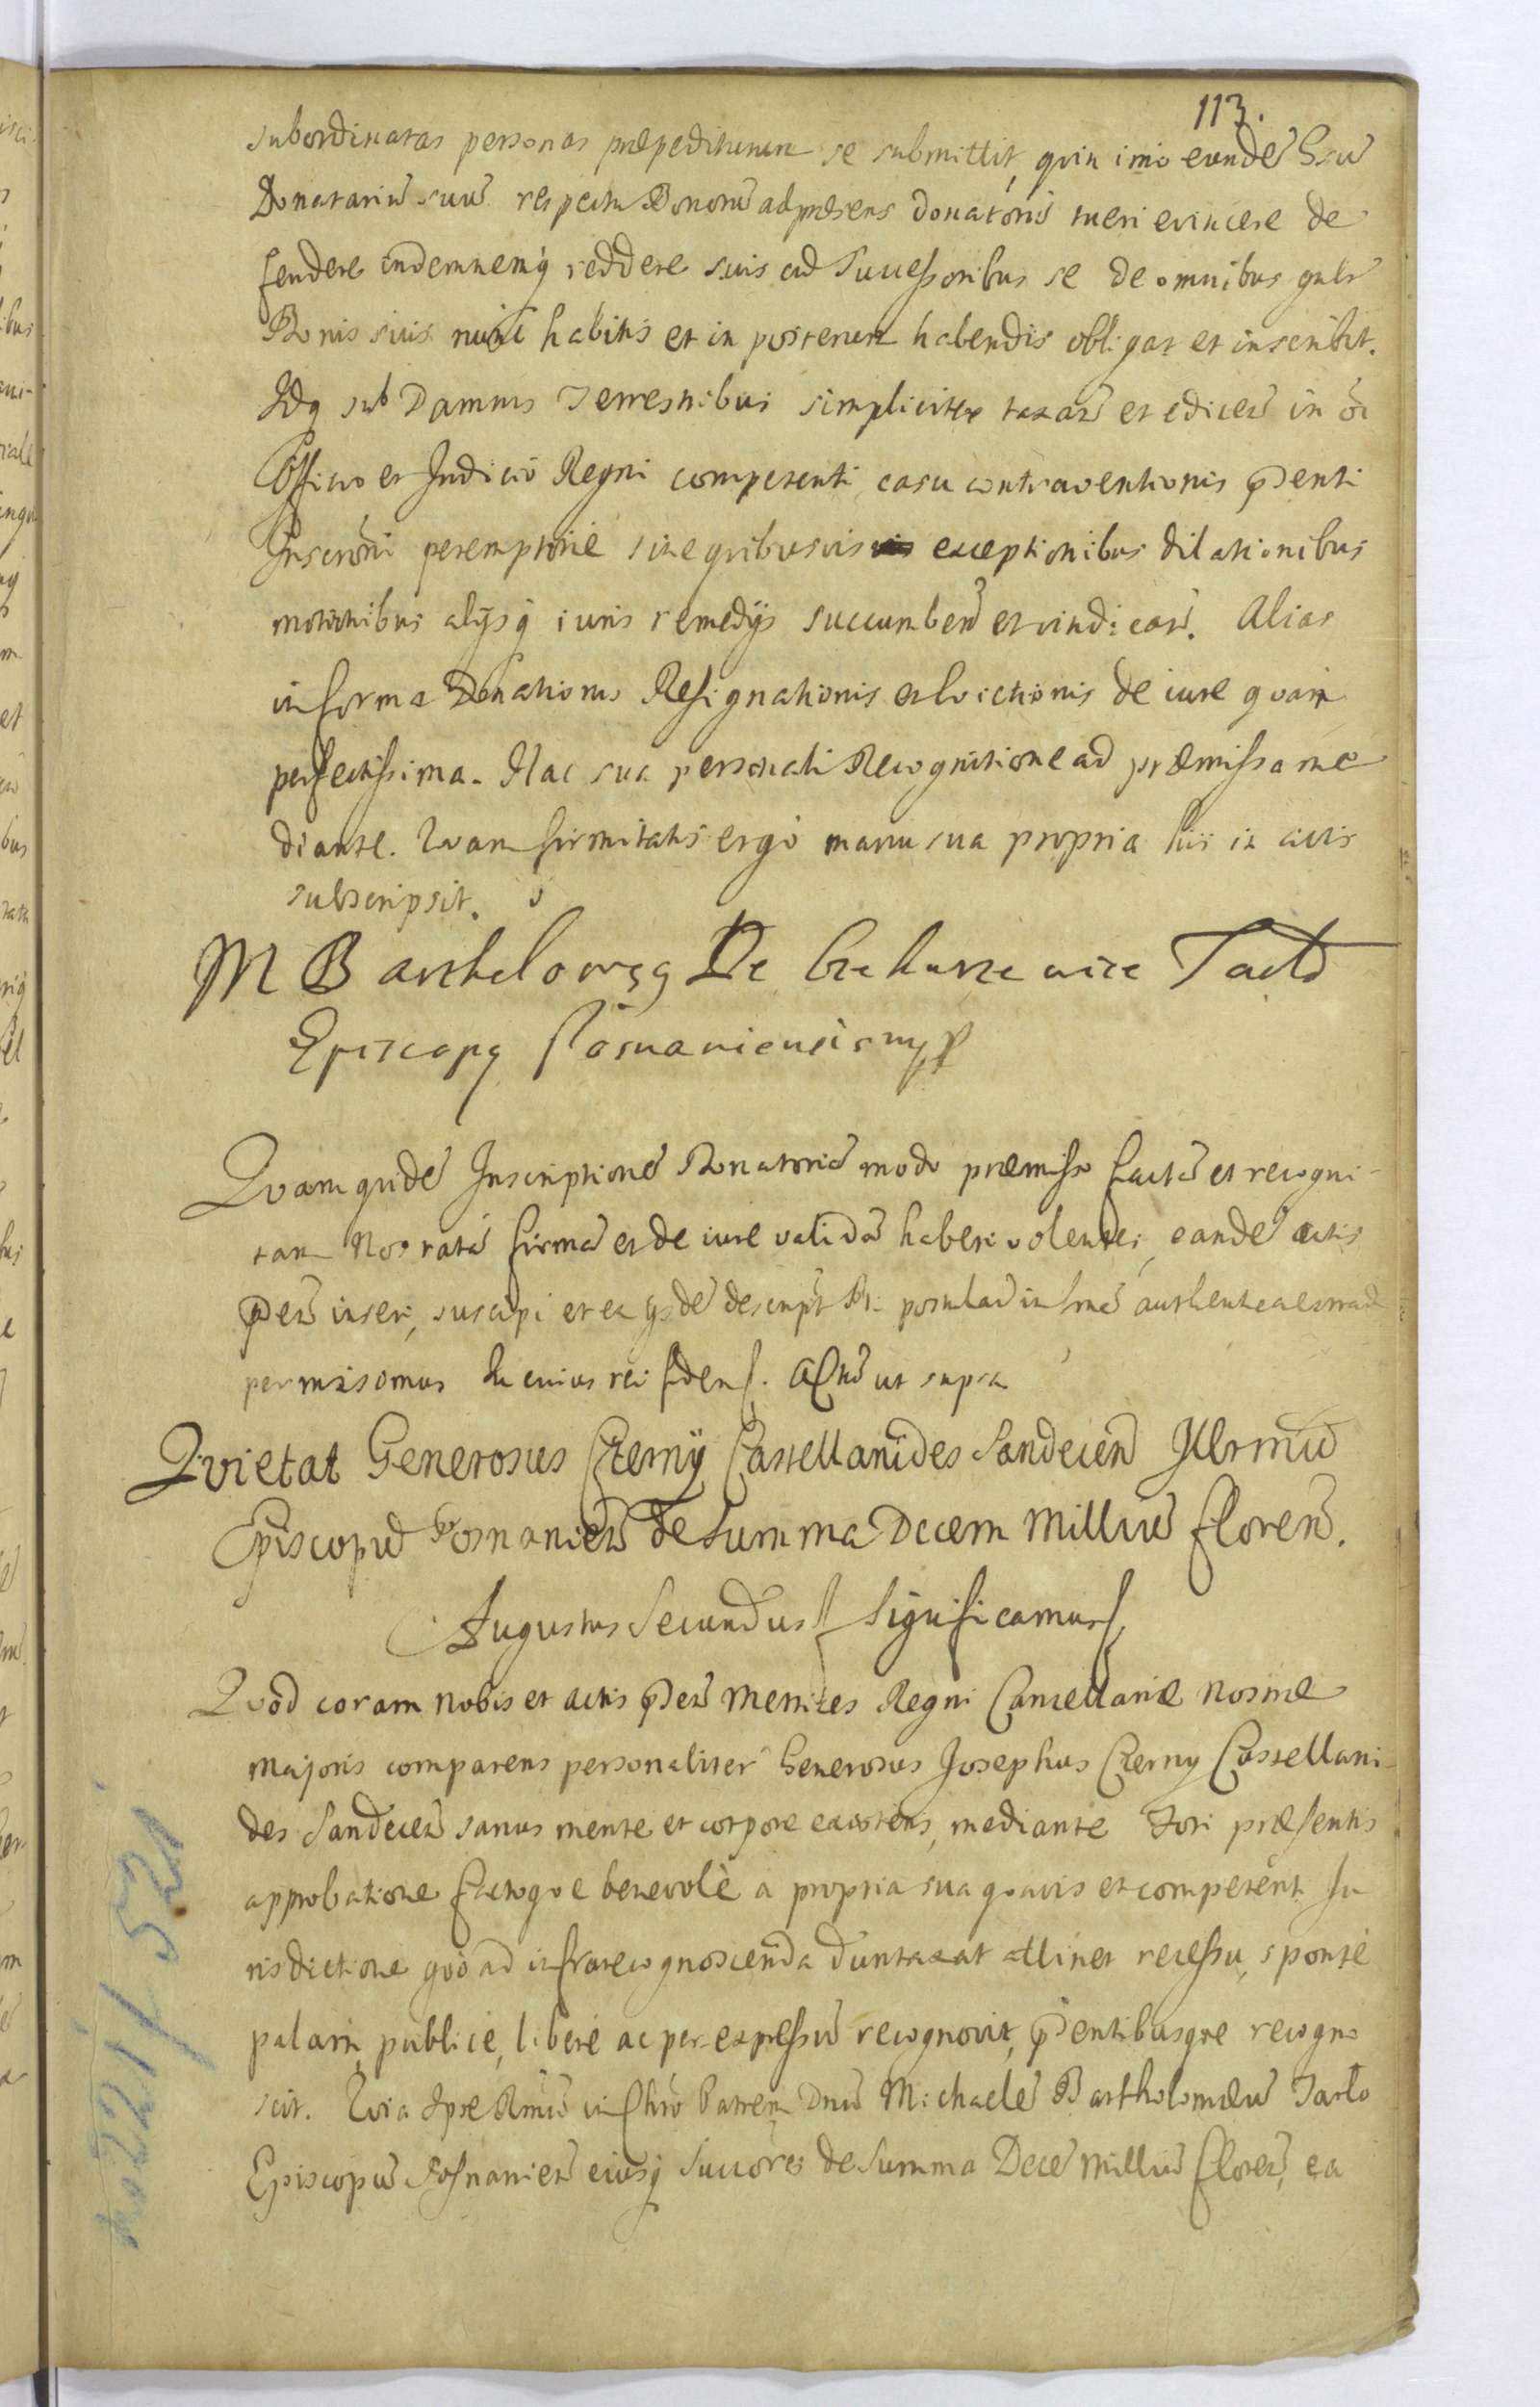 113.
subordinatas personas præpediturum se submittit, quin imo eundẽ Gsũ
Donatariũ suũ respectu Bonorũ ad præsens donatorũ tueri evincere de
fendere indemnemq reddere suis cũ Successoribus se de omnibus gnlr
Bonis suis nunc habitis et in posterum habendis obligat et inscribit.
Idq sub Damnis Terrestribus simpliciter taxañ et ediceñ in oĩ
Officio et Judicio Regni competenti casu contraventionis p̃senti
Inscrõni peremptorie sine quibusvis exceptionibus dilationibus
motionibus alijsq iuris remedijs succumbeñ et vindicañ. Alias
in forma Donationis Resignationis et Evictionis de iure quam
perfectissima. Hac sua personali Recognitione ad præmissa me
diante. Quam firmitatis ergo manu sua propria hic in actis
subscripsit.
M Bartholomeq De Tarło
Episcopq Posnaniensis mpp
Quam quidẽ Inscriptionẽ Donatoriã modo præmisso factã et recogni-
tam Nos ratã firmã et de iure validã haberi volentes, eandẽ actis
p̃señ inseri, suscipi et ex ysdẽ descriptã Pti postulañ in formã authentica extradi
permisimus. In cuius rei fidem. Actũ ut supra
Qvietat Generosus Czerny Castellanides Sandecen Illrmũ
Episcopũ Posnanieñ de Summa Decem Milliũ floreñ.
Augustus Secundus Significamus
Quod coram Nobis et actis p̃señ Metrices Regni Cancellariæ Nostræ
Majoris comparens personaliter Generosus Josephus Czerny Castellani-
des Sandeceñ sanus mente et corpore existens, mediante Fori præsentis
approbatione factoque benevolè a propria sua quavis et competent. Ju
risdictione quò ad infrarecognoscenda duntaxat attinet recessu, sponte
palam, publice, libere ac per expressũ recognovit, p̃sentibusque recogno
scit. Quia Ipse Rmũ in Chrõ Patrem Dnũ Michaelẽ Bartholomæũ Tarło
Episcopũ Posnanieñ eiusq Succõres de Summa Decẽ Milliũ floreñ, ea
No 221/521